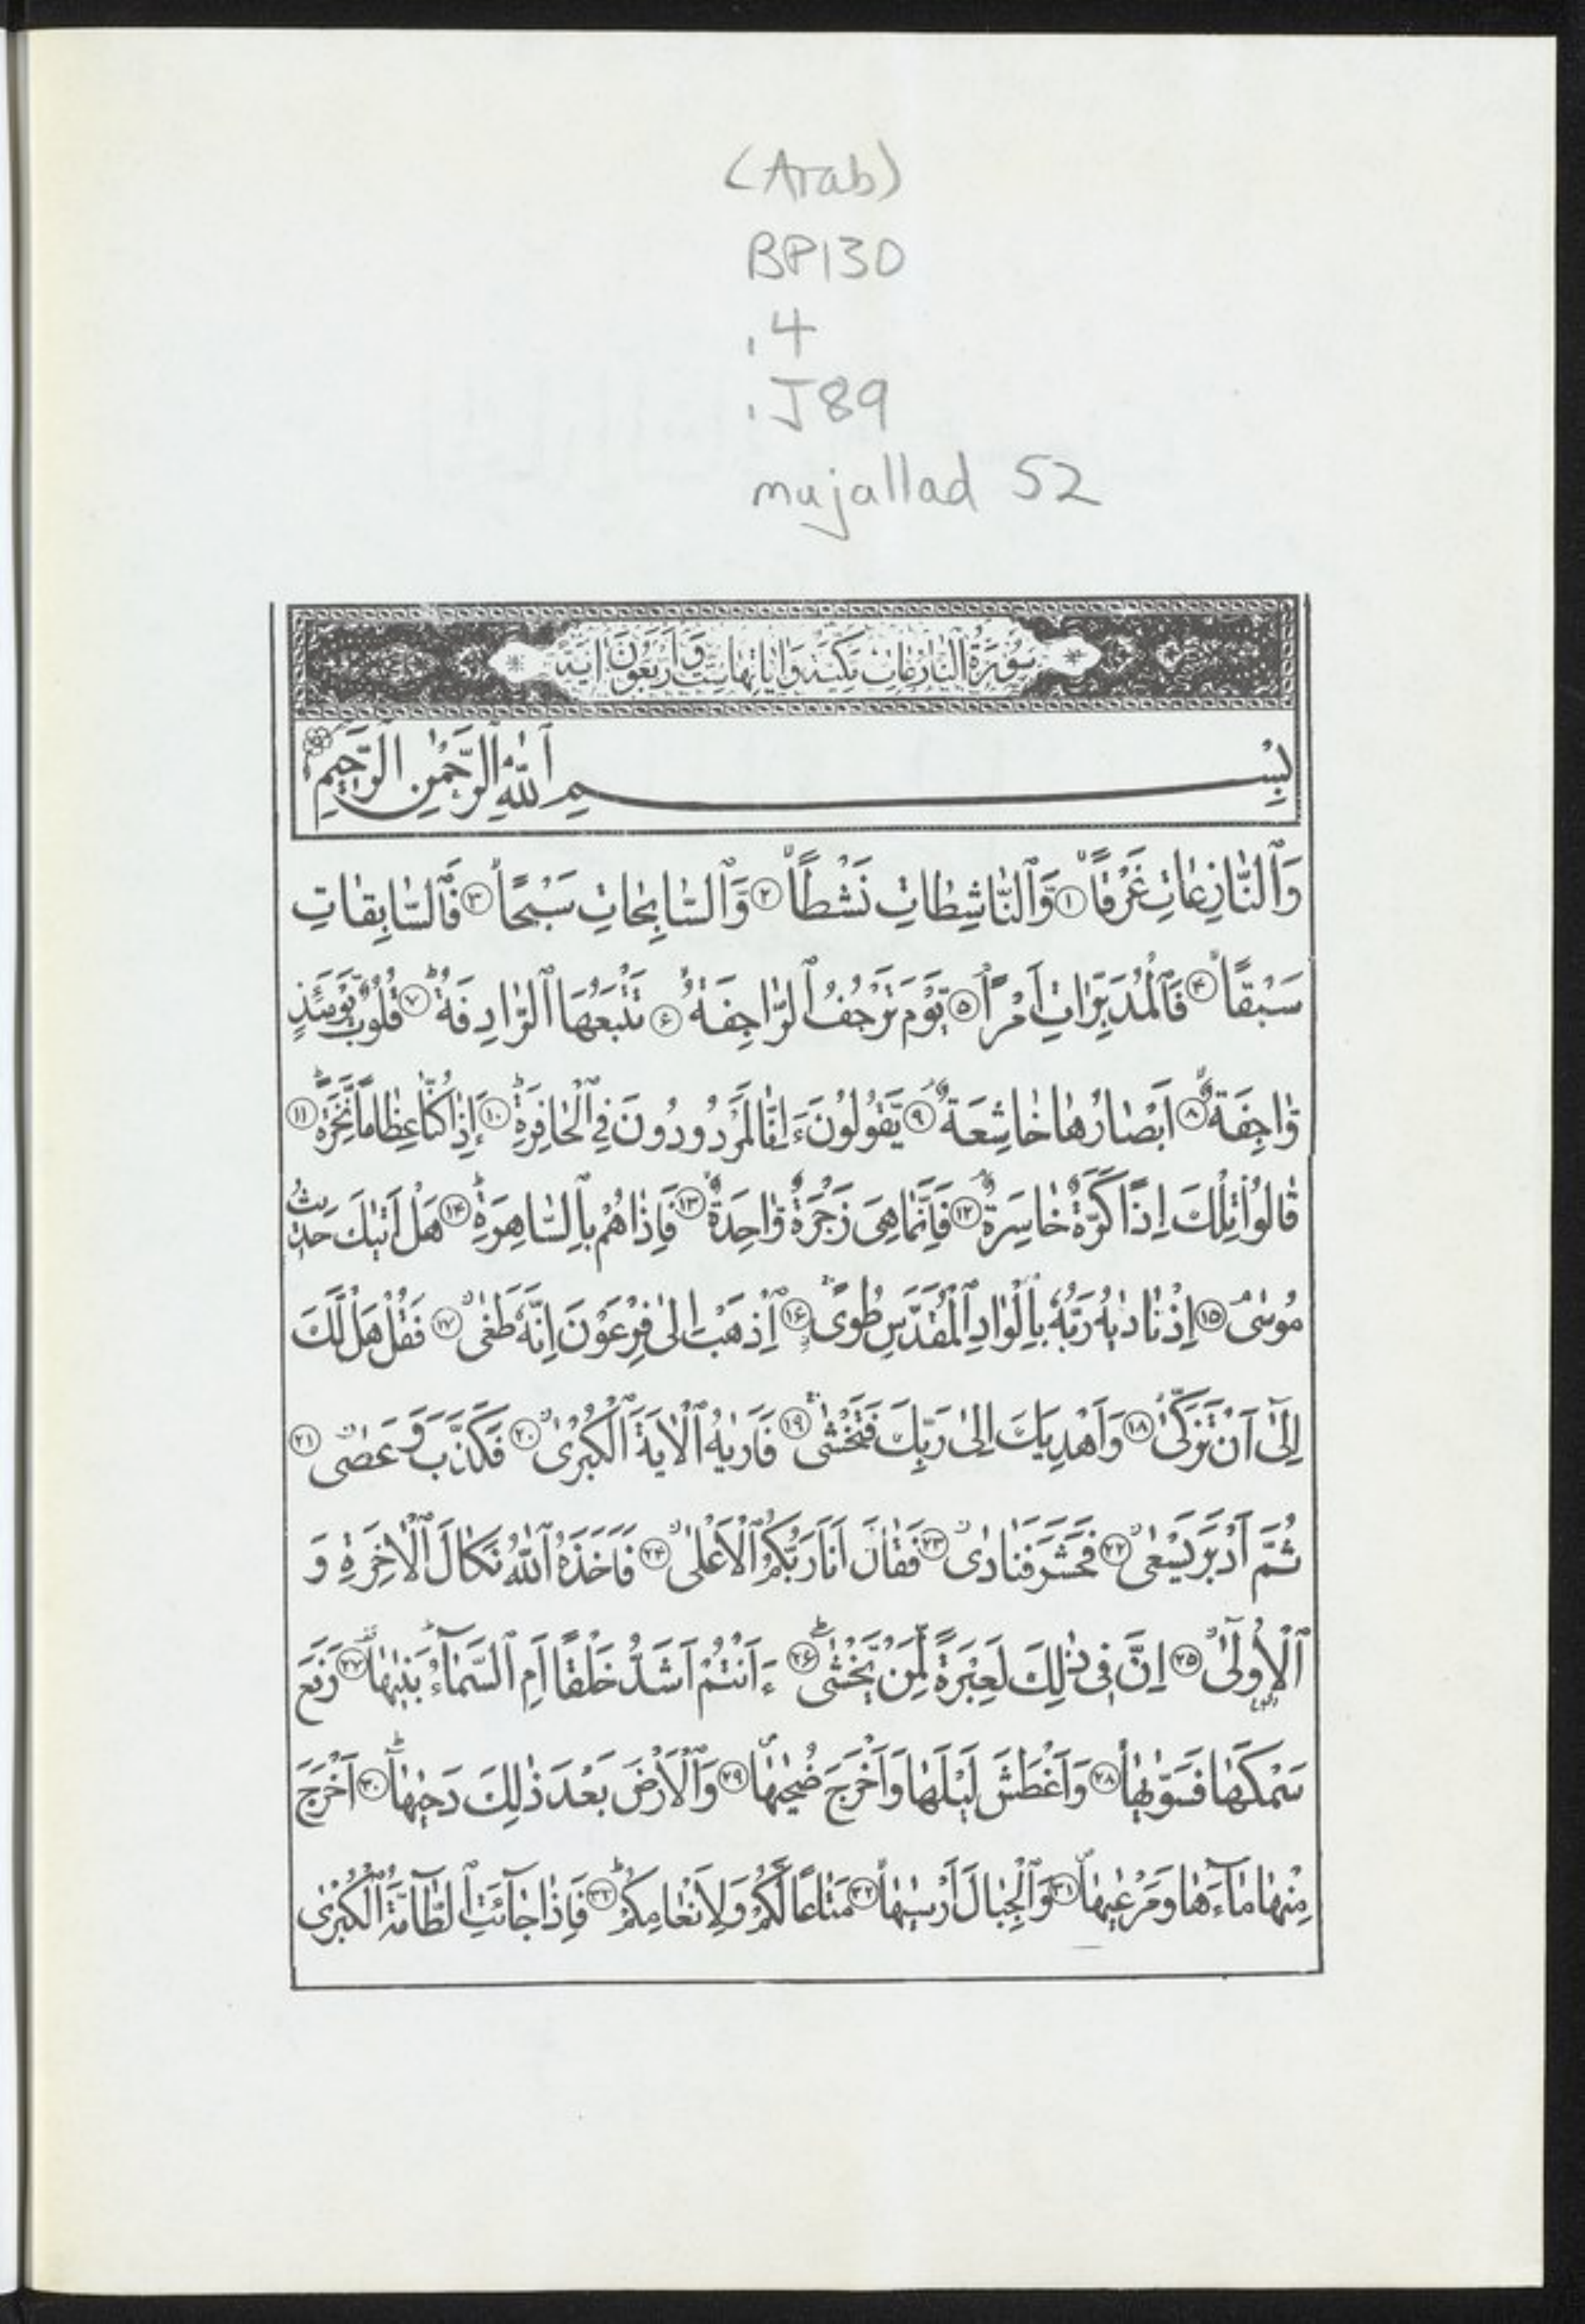 (Arab)
BP130
.4
.J89
mujallad 52
سُورَةُ النّازِعاتِ مَكِّيَّة وَاياتُهاسِتٌ وَاَرْبَعُونَ ايَة
بِسْمِ ٱللّٰهِ ٱلرَّحْمٰنِ ٱلرَّحِيمِ
وَٱلنّٰازِعٰاتِ غَرْقاً ۱ وَٱلنّٰاشِطٰاتِ نَشْطاً ۲ وَٱلسّٰابِحٰاتِ سَبْحاً ۳ فَٱلسّٰابِقٰاتِ
سَبْقاً ۴ فَٱلْمُدَبِّرٰاتِ اَمْرًا ۵ يَوْمَ تَرْجُفُ ٱلرّٰاجِفَةُ ۶ تَتْبَعُهَا ٱلرّٰادِفَةُ ۷ قُلُوبٌ يَوْمَئِذٍ
وٰاجِفَةٌ ۸ اَبْصٰارُهٰا خٰاشِعَةٌ ۹ يَقُولُونَ ءَاِنّٰا لَمَرْدُودُونَ فِي ٱلْحٰافِرَةِ ۱۰ ءَاِذٰا كُنّٰا عِظٰاماً نَخِرَةً ۱۱
قٰالُوا تِلْكَ اِذًا كَرَّةٌ خٰاسِرَةٌ ۱۲ فَاِنَّمٰا هِيَ زَجْرَةٌ وٰاحِدَةٌ ۱۳ فَاِذٰا هُمْ بِالسّٰاهِرَةِ ۱۴ هَلْ اَتٰيكَ حَدِيثُ
مُوسٰى ۱۵ اِذْ نٰادٰيهُ رَبُّهُ بِالْوٰادِ ٱلْمُقَدَّسِ طُوىً ۱۶ اِذْهَبْ اِلىٰ فِرْعَوْنَ اِنَّهُ طَغىٰ ۱۷ فَقُلْ هَلْ لَكَ
اِلىٰٓ اَنْ تَزَكّٰى ۱۸ وَاَهْدِيَكَ اِلىٰ رَبِّكَ فَتَخْشٰى ۱۹ فَاَرٰيهُ ٱلْاٰيَةَ ٱلْكُبْرىٰ ۲۰ فَكَذَّبَ وَعَصٰى ۲۱
ثُمَّ اَدْبَرَ يَسْعىٰ ۲۲ فَحَشَرَ فَنٰادىٰ ۲۳ فَقٰالَ اَنَا رَبُّكُمُ ٱلْاَعْلىٰ ۲۴ فَاَخَذَهُ ٱللّٰهُ نَكٰالَ ٱلْاٰخِرَةِ وَ
ٱلْاُولىٰٓ ۲۵ اِنَّ فِي ذٰلِكَ لَعِبْرَةً لِمَنْ يَخْشٰى ۲۶ ءَاَنْتُمْ اَشَدُّ خَلْقاً اَمِ ٱلسَّمٰآءُ بَنٰيهٰا ۲۷ رَفَعَ
سَمْكَهٰا فَسَوّٰيهٰا ۲۸ وَاَغْطَشَ لَيْلَهٰا وَاَخْرَجَ ضُحٰيهٰا ۲۹ وَٱلْاَرْضَ بَعْدَ ذٰلِكَ دَحٰيهٰا ۳۰ اَخْرَجَ
مِنْهٰا مٰآءَهٰا وَمَرْعٰيهٰا ۳۱ وَٱلْجِبٰالَ اَرْسٰيهٰا ۳۲ مَتٰاعًا لَكُمْ وَلِاَنْعٰامِكُمْ ۳۳ فَاِذٰا جٰآئَتِ ٱلطّٰآمَّةُ ٱلْكُبْرىٰ